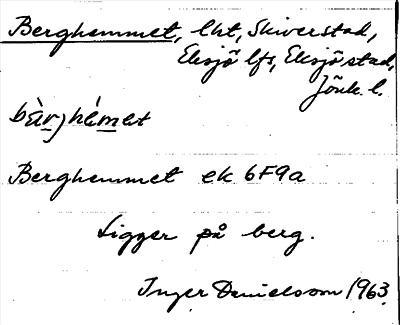 Berghemmet, lht, Skiverstad,
Eksjö lfs, Eksjö stad,
Jönk. l.
bä̀rjhém​et
Berghemmet ek 6F9a
Ligger på berg.
Inger Danielsson 1963